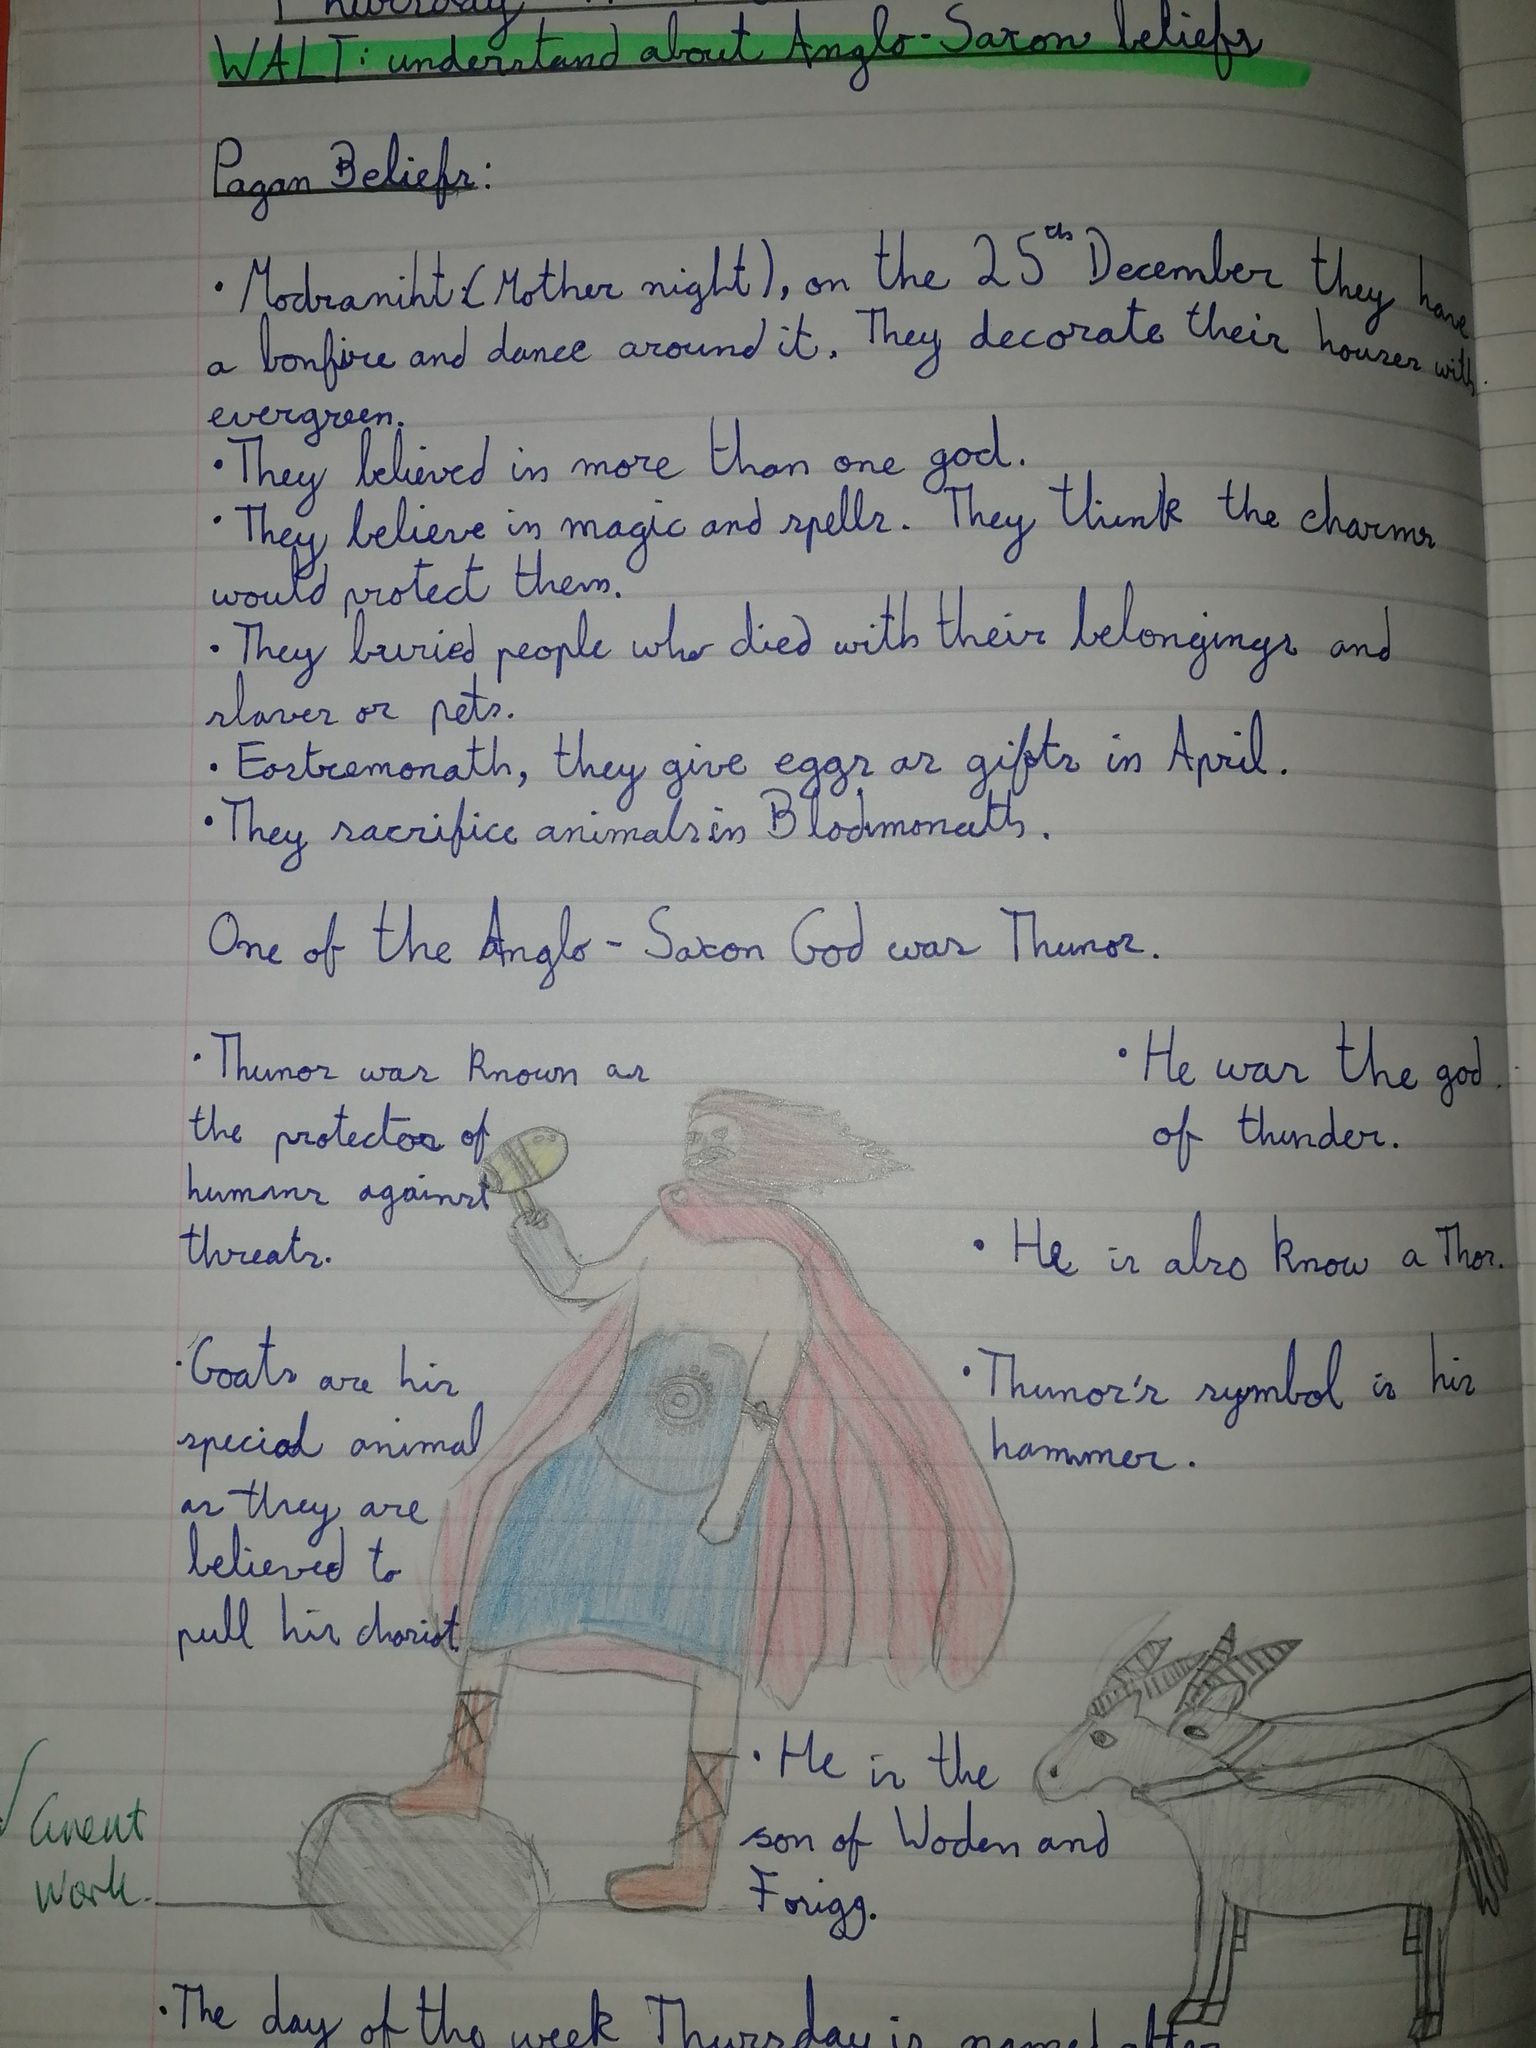 Thursday
WALT: understand about Anglo-Saxon beliefs
Pagan Beliefs:
• Modraniht: (Mother night), on the 25th December they have
a bonfire and dance around it. They decorate their houses with
evergreen.
• They believed in more than one god.
• They believe in magic and spells. They think the charms
would protect them.
• They buried people who died with their belongings and
slaves or pets.
• Eostremonath, they give eggs as gifts in April.
• They sacrifice animals in Blodmonath.
One of the Anglo-Saxon God was Thunor.
• Thunor was known as
the protector of
humans against
threats.
• He was the god
of thunder.
• He is also know a Thor.
• Goats are his
special animal
as they are
believed to
pull his chariot
• Thunor's symbol is his
hammer.
• He is the
son of Woden and
Forigg.
Great
work.
• The day of the week Thursday is named after